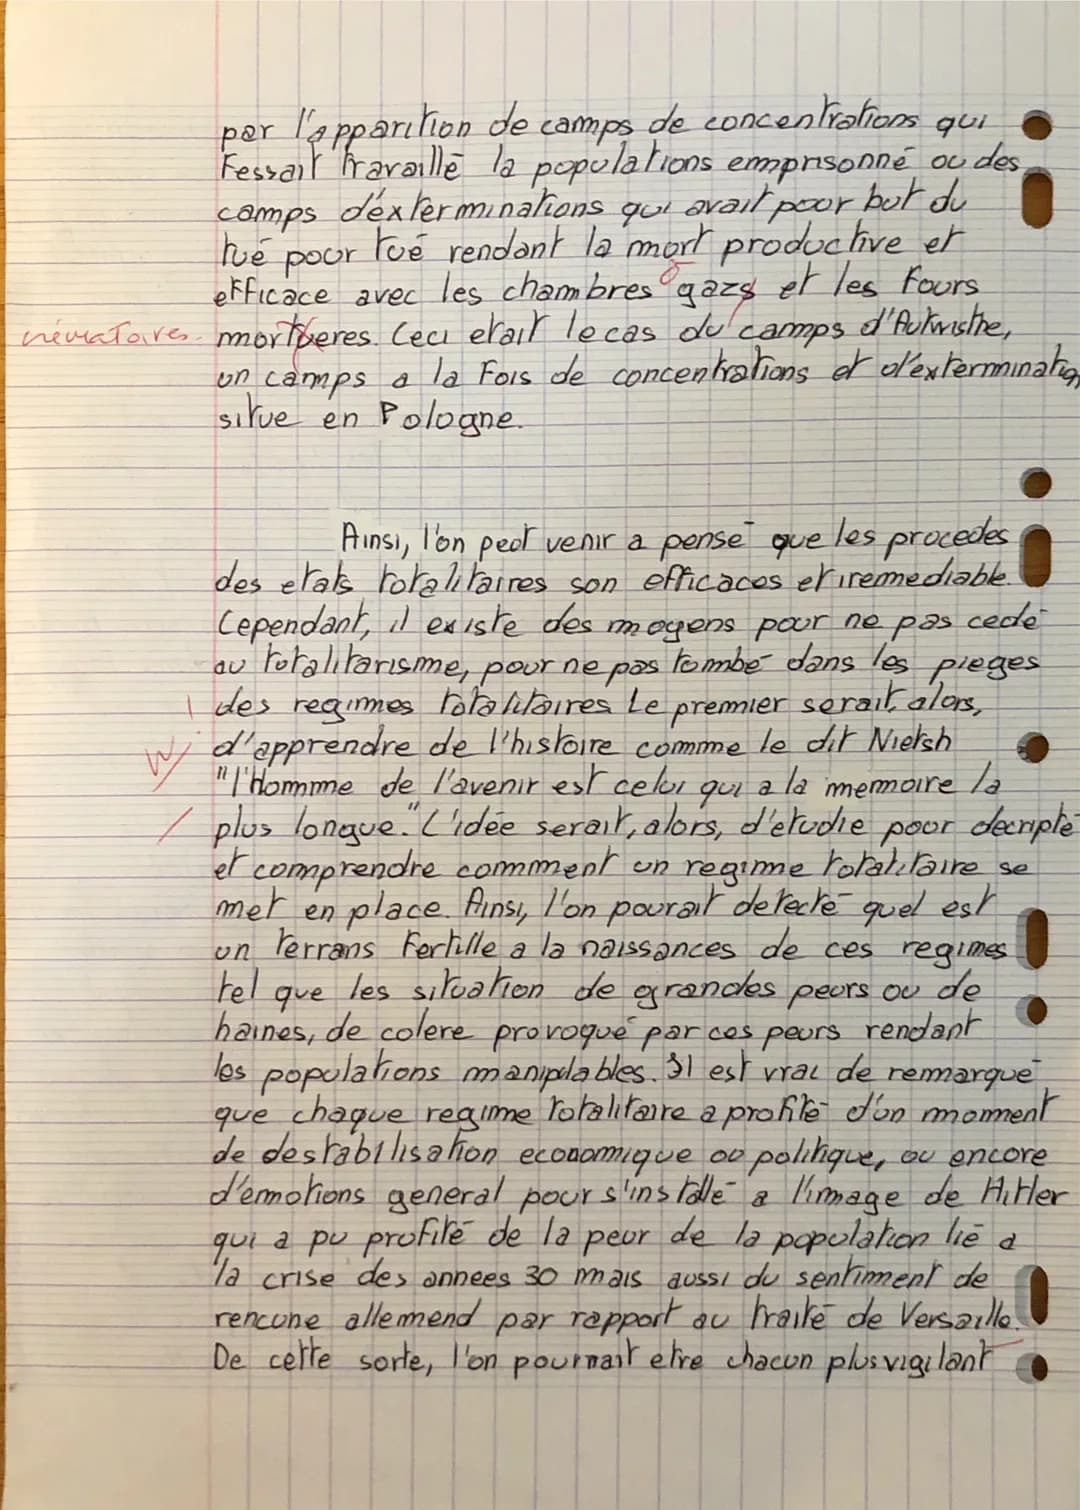 par l'apparition de camps de concentrations qui
Fessait travaillé la populations emprisonné ou des
camps d'éxterminations qui avait pour but du
tué pour tué rendant la mort productive et
efficace avec les chambres à gazs et les fours
crématoires mortueres. Ceci etait le cas du camps d'Autwisthe,
un camps a la Fois de concentrations et d'éxtermination
situe en Pologne.
Ainsi, l'on peut venir a pensé que les procedes
des etats totalitaires son efficaces et iremediable.
Cependant, il existe des moyens pour ne pas cedé
au totalitarisme, pour ne pas tombé dans les pieges
des regimes totalitaires. Le premier serait, alors,
d'apprendre de l'histoire comme le dit Nietsh
"l'Homme de l'avenir est celui qui a la memoire la
plus longue." L'idée serait, alors, d'etudié pour decripté
et comprendre comment un regime totalitaire se
met en place. Ainsi, l'on pourait detecté quel est
un terrans Fertille a la naissances de ces regimes
tel que les situation de grandes peurs ou de
haines, de colere provoqué par ces peurs rendant
les populations manipulables. Il est vrai de remarqué
que chaque regime totalitaire a profité d'un moment
de destabilisation economique ou politique, ou encore
d'émotions general pour s'installé a l'image de Hitler
qui a pu profité de la peur de la population lié a
la crise des annees 30 mais aussi du sentiment de
rencune allemend par rapport au traité de Versaille.
De cette sorte, l'on pourrait etre chacun plus vigilant